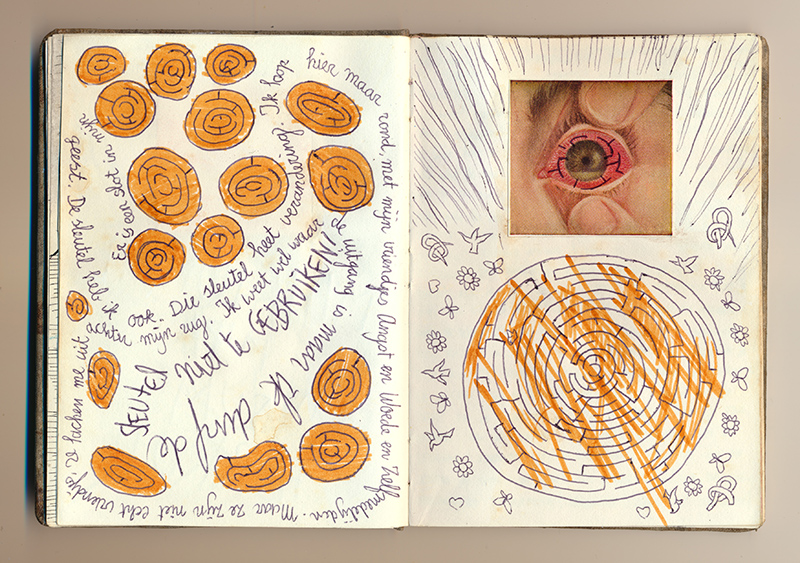 Er is een slot in mijn
geest. De sleutel heb ik
ook. Die sleutel heet verandering. Ik loop
hier maar rond met mijn vriendjes Angst en Woede en Zelfmedelijden.
Maar ze zijn niet echt vriendjes, ze lachen me uit
achter mijn rug. Ik weet wel waar
de uitgang is maar ik
durf de
SLEUTEL niet te GEBRUIKEN!